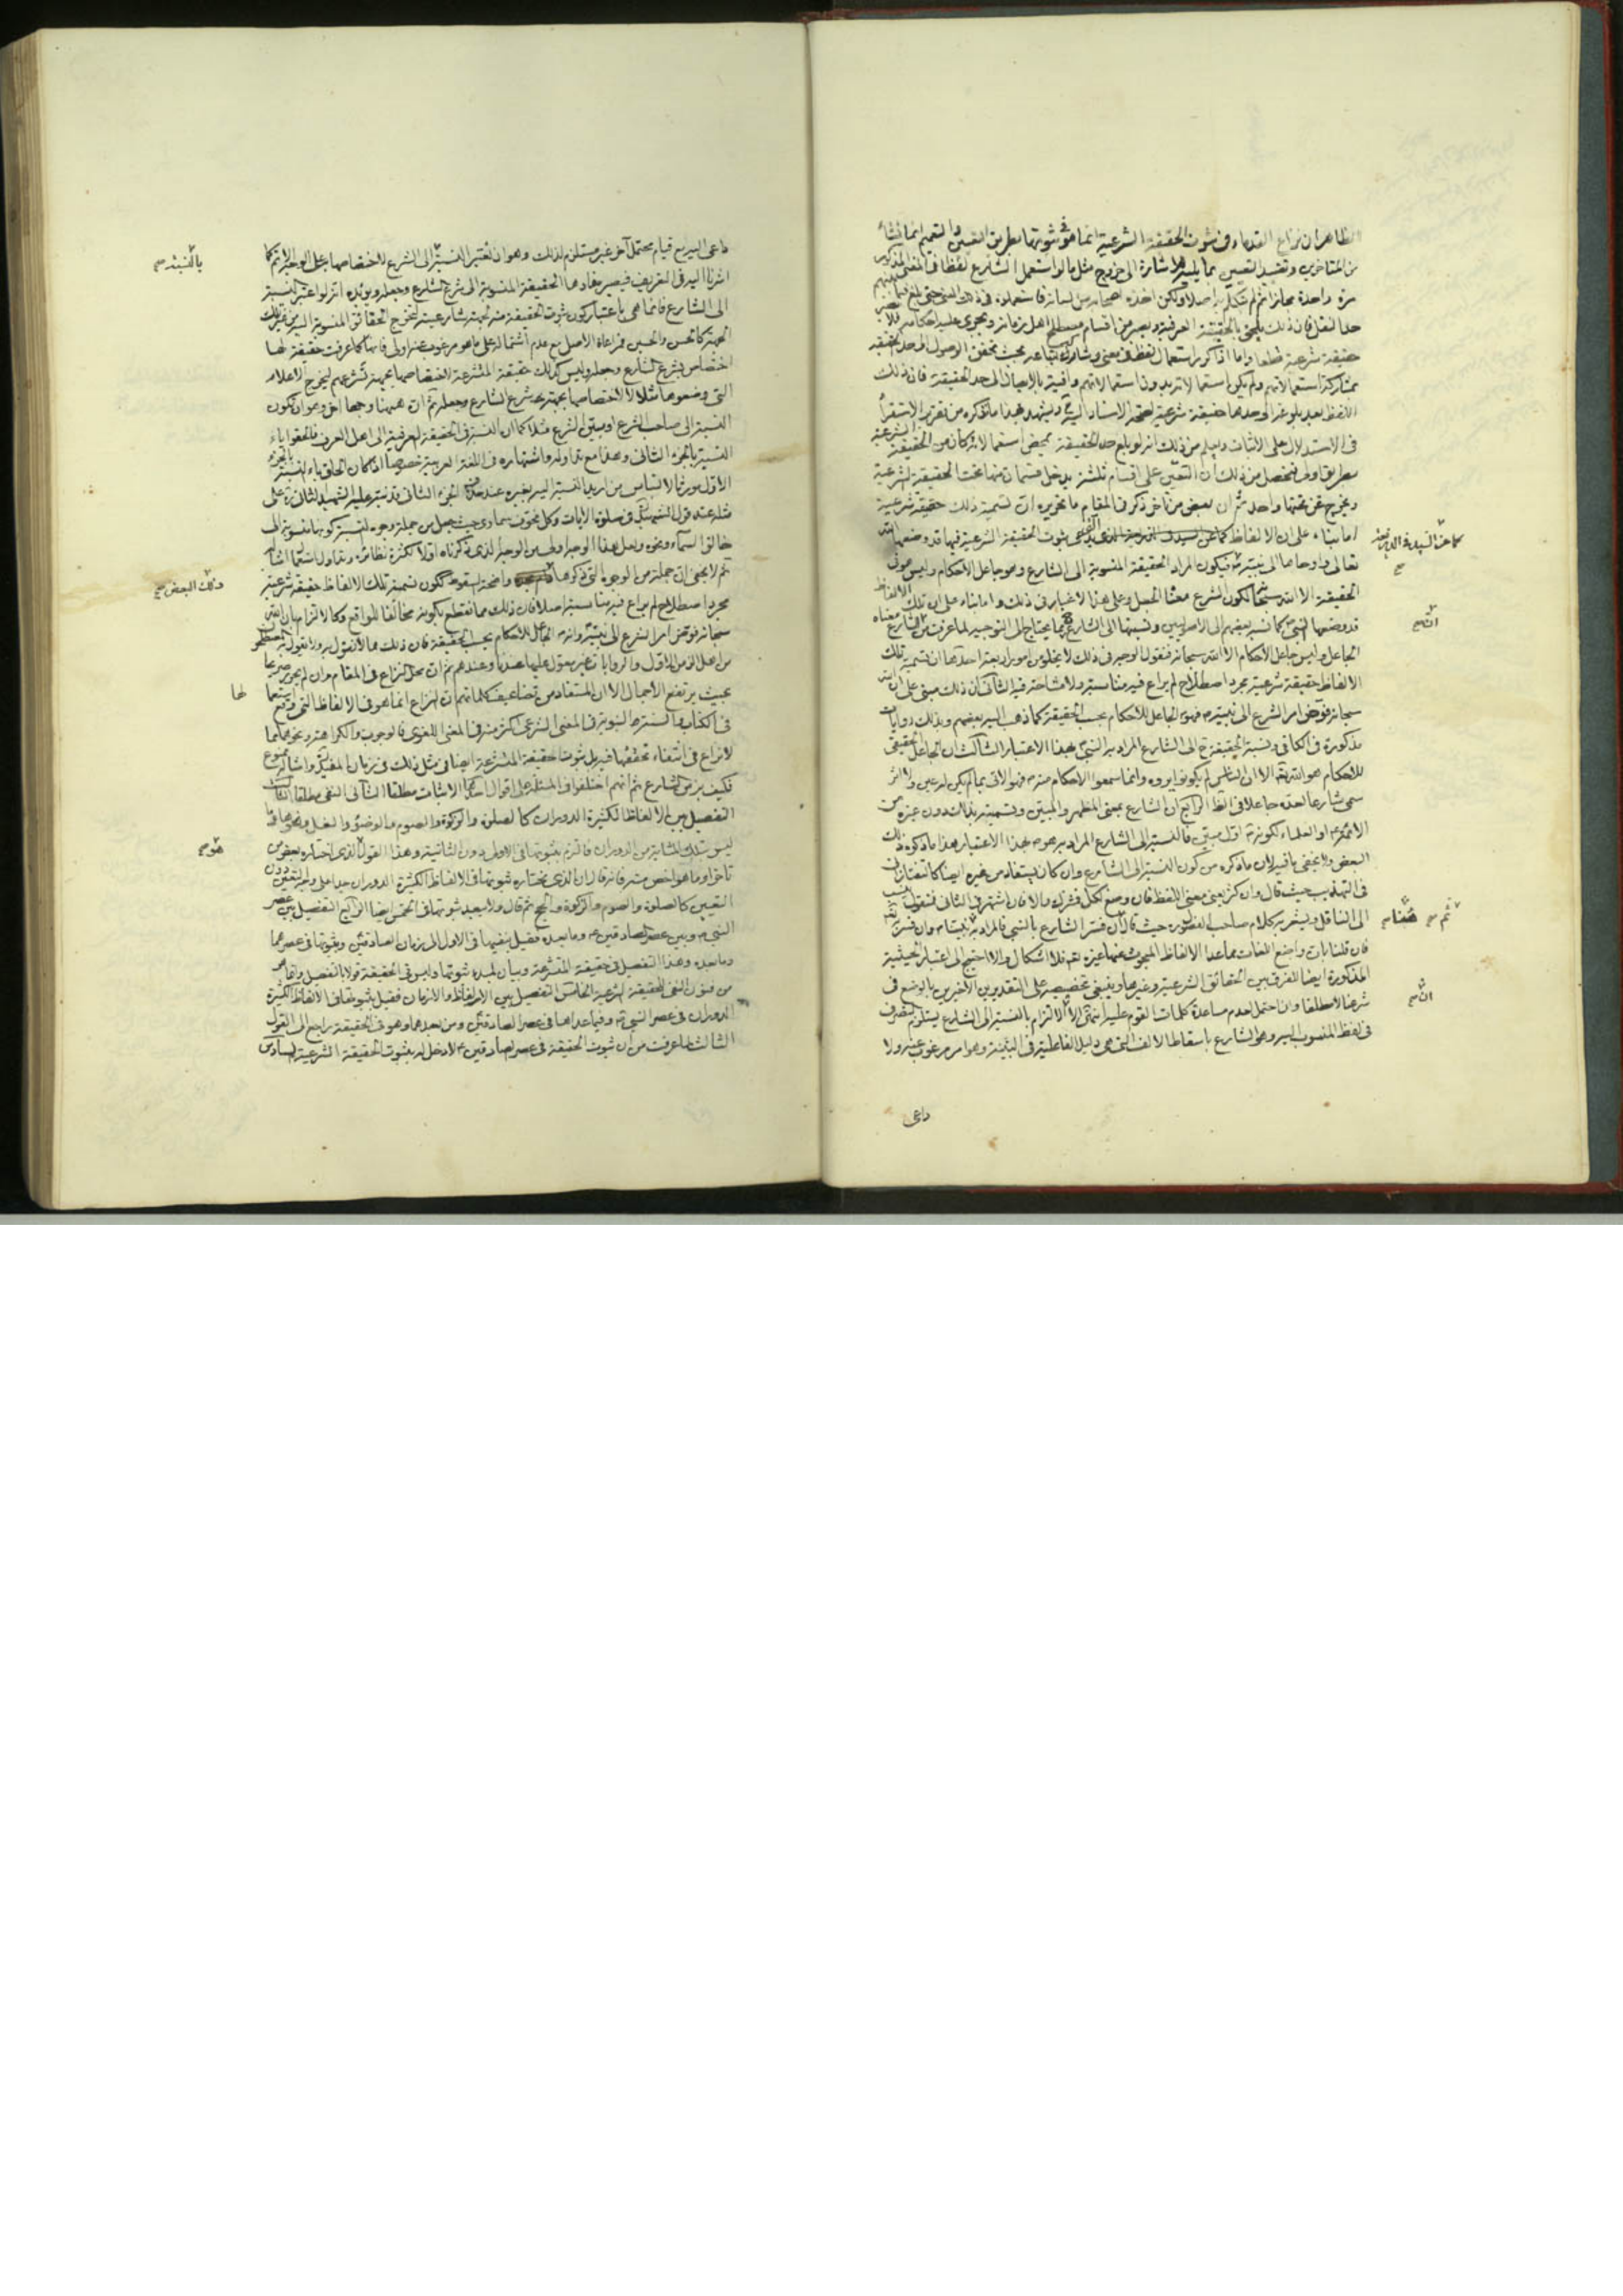 الظاهر ان نزاع القدماء في ثبوت الحقيقة الشرعية انما هو في ثبوتها بطريق التعيين والتعميم انما نشاء
من المتاخرين وتقييد التعيين بما يليه للاشارة الى خروج مثل ما لو استعمل الشارع لفظا في المعنى المذكور
مرة واحدة مجازا ثم لم يتكلم به اصلا ولكن اخذه اصحابه من لسانه فاستعملوه في ذلك المعنى حتى بلغ
حد النقل فان ذلك يلحق بالحقيقة العرفية ويصير من اقسام مصطلح اهل زمانه ويجري عليه احكامه فلا
حقيقة شرعية قطعا واما اذا كور استعمال لفظ في معنى وشاركه اتباعه بحيث تحقق الوصول الى حد الحقيقة
بمشاركة استعمالاتهم ولم يكن استعمالاته بدون استعمالاتهم وافية بالايصال الى حد الحقيقة فان ذلك
اللفظ بعد بلوغه الى حدها حقيقة شرعية لصحة الاسناد اليه ويشهد بهذا ما نذكره من تقرير الاستقراء
في الاستدلال على الاثبات ويعلم من ذلك انه لو بلغ حد الحقيقة بمحض استعمالاته كان من الحقيقة الشرعية
بطريق اولى فتحصل من ذلك ان التعين على اقسام ثلثة يدخل قسمان منها تحت الحقيقة الشرعية
ويخرج عن تحتها واحد ثم ان بعض من تاخر ذكر في المقام ما تحريره ان تسمية ذلك حقيقة شرعية
اما بناء على ان الالفاظ ثبوت الحقيقة الشرعية فيها قد وضعها الله
تعالى واوحاها الى نبيه فيكون المراد الحقيقة المنسوبة الى الشارع وهو جاعل الاحكام وليس هو في
الحقيقة الا الله سبحانه لكون الشرع معناه الجعل وعلى هذا لا غبار في ذلك واما بناء على ان تلك الالفاظ
قد وضعها النبي كما نسبه بعضهم الى الاصوليين ونسبتها الى الشارع مما يحتاج الى التوجيه لما عرفت من ان الشارع معناه
الجاعل وليس جاعل الاحكام الا الله سبحانه فنقول الوجه في ذلك لا يخلو من امور اربعة احدها ان تسمية تلك
الالفاظ حقيقة شرعية مجرد اصطلاح لم يراع فيه مناسبة ولا مشاحة فيه الثاني ان ذلك مبني على ان الله
سبحانه فوض امر الشرع الى نبيه فهو الجاعل للاحكام بحسب الحقيقة كما ذهب اليه بعضهم وبذلك روايات
مذكورة في الكافي ونسبة الحقيقة ح الى الشارع المراد به النبي بهذا الاعتبار الثالث ان الجاعل الحقيقي
للاحكام هو الله تعالى الا ان الناس لم يكونوا يروه وانما سمعوا الاحكام منه فهو الاتي بما لم يكن
سمي شارعا لعده جاعلا في الظ الرابع ان الشارع بمعنى المظهر والمبين وتسميته بذلك دون غيره من
الائمة او العلماء لكونه اول مبين فالنسبة الى الشارع المراد به هو بهذا الاعتبار هذا ما ذكره ذلك
البعض ولا يخفى ما فيه لان ما ذكره من كون النسبة الى الشارع وان كان يستفاد من غيره ايضا كالتفتازاني
في التهذيب حيث قال وان كثر يعني معنى اللفظ فان وضع لكل فمشترك والا فان اشتهر في الثاني فمنقول ينسب
الى الناقل ويشعر به كلام صاحب الفصول حيث قال ان فسر الشارع بالنبي فالمراد به البينة وان فسر به تعالى
فان قلنا بان واضع اللغات مما عدا الالفاظ المبحوث عنها غيره تعالى فلا اشكال والا احتيج الى اعتبار الحيثية
المذكورة ايضا للفرق بين الحقائق الشرعية وغيرها وينبغي تخصيصه على التقديرين الاخيرين بالوضع في
شرعنا لا مطلقا وان احتمل لعدم مساعدة كلمات القوم عليه انتهى الا ان الالتزام بالنسبة الى الشارع يستلزم التصرف
في لفظ المنسوب اليه وهو الشارع باسقاط الالف التي هي دليل الفاعلية في البينة وهو امر مرغوب عنه ولا
داعي
كما عن السيد
صح
انه صح
ثم صح
انه صح
داعي اليه مع قيام محتمل آخر غير مستلزم لذلك وهو ان تعتبر النسبة الى الشرع لاختصاصها بجعل الوحي الاتم كما
اشرنا اليه في التعريف فيصير مفادها الحقيقة المنسوبة الى شرع الشارع وجعله ويؤيده انه لو اعتبر النسبة
الى الشارع فانما هي باعتبار كون ثبوت الحقيقة منه بحيثية شارعيته ليخرج الحقائق المنسوبة اليه من غير تلك
الجهة كالحسن والحسين فمراعاة الاصل مع عدم اشتماله على ما هو مرغوب عنه اولى فانها كما عرفت حقيقة لها
اختصاص بشرع الشارع وجعله وليس كذلك حقيقة المتشرعة لاختصاصها بجهة تشرعهم ليخرج الاعلام
التي وضعوها مثلا لا لاختصاصها بجهة شرع الشارع وجعله ثم ان هيهنا وجها اخر وهو ان تكون
النسبة الى صاحب الشرع او مبين الشرع مثلا كما ان النسبة في الحقيقة العرفية الى اهل العرف فالحقوا ياء
النسبة بالجزء الثاني وهذا مع تداوله واشتهاره في اللغة العربية خصوصا اذا كان الحاق ياء النسبة بالجزء
الاول مورثا لالتباس من اريد النسبة اليه بغيره عند حذف الجزء الثاني قد نبه عليه الشهيد الثاني على
مثله عند قول الشهيد في صلوة الايات وكل مخوف سماوي حيث جعل من جملة وجوه النسبة كونها منسوبة الى
خالق السماء ونحوه ولعل هذا الوجه اولى من الوجه الذي ذكرناه اولا لكثرة نظائره وتداول استعماله
ثم لا يخفى ان جملة من الوجوه التي ذكرها واضحة السقوط ككون تسمية تلك الالفاظ حقيقة شرعية
مجرد اصطلاح لم يراع فيه مناسبة اصلا فان ذلك مما نقطع بكونه مخالفا للواقع وكالالتزام بان الله
سبحانه فوض امر الشرع الى نبيه وانه الجاعل للاحكام بحسب الحقيقة فان ذلك مما لا نقول به ولا يقول به
من اهل ثم ان محل النزاع في المقام وان لم يحرر صريحا
بحيث يرتفع الاجمال الا ان المستفاد من تضاعيف كلماتهم ان النزاع انما هو في الالفاظ التي وقع استعمالها
في الكتاب والسنة النبوية في المعنى الشرعي اكثر منه في المعنى اللغوي فالوجوب والكراهة ونحوهما مما
لا نزاع في انتفاء تحققها فيه بل ثبوت حقيقة المتشرعة ايضا في مثل ذلك في زمان المفيد وامثاله ممنوع
فكيف بزمن الشارع ثم انهم اختلفوا في المسئلة على اقوال احدها الاثبات مطلقا الثاني النفي مطلقا الثالث
التفصيل بين الالفاظ الكثيرة الدوران كالصلوة والزكوة والصوم والوضوء والغسل ونحوها وما
ليس بتلك المثابة من الدوران فالتزم بثبوتها في الاول دون الثانية وهذا القول الذي اختاره بعض من
تاخر او ما هو اخص منه فانه قال ان الذي نختاره ثبوتها في الالفاظ الكثيرة الدوران جدا على وجه التعين دون
التعيين كالصلوة والصوم والزكوة والحج ثم قال ولا يبعد ثبوتها في الخمس ايضا الرابع التفصيل بين عصر
النبي وبين عصر الصادقين وما بعده فقيل بنفيها في الاول الى زمان الصادقين وثبوتها في عصرهما
وما بعده وهذا التفصيل في حقيقة المتشرعة وبيان لمبدء ثبوتها وليس في الحقيقة قولا بالتفصيل وانما هو
من قبيل النفي للحقيقة الشرعية الخامس التفصيل بين الالفاظ والازمان فقيل بثبوتها في الالفاظ الكثيرة
الدوران في عصر النبي وفيما عداها في عصر الصادقين ومن بعدهما وهو في الحقيقة راجع الى القول
الثالث لما عرفت من ان ثبوت الحقيقة في عصر الصادقين لا دخل له بثبوت الحقيقة الشرعية السادس
بالنسبة صح
ذلك البعض صح
لها
هو صح